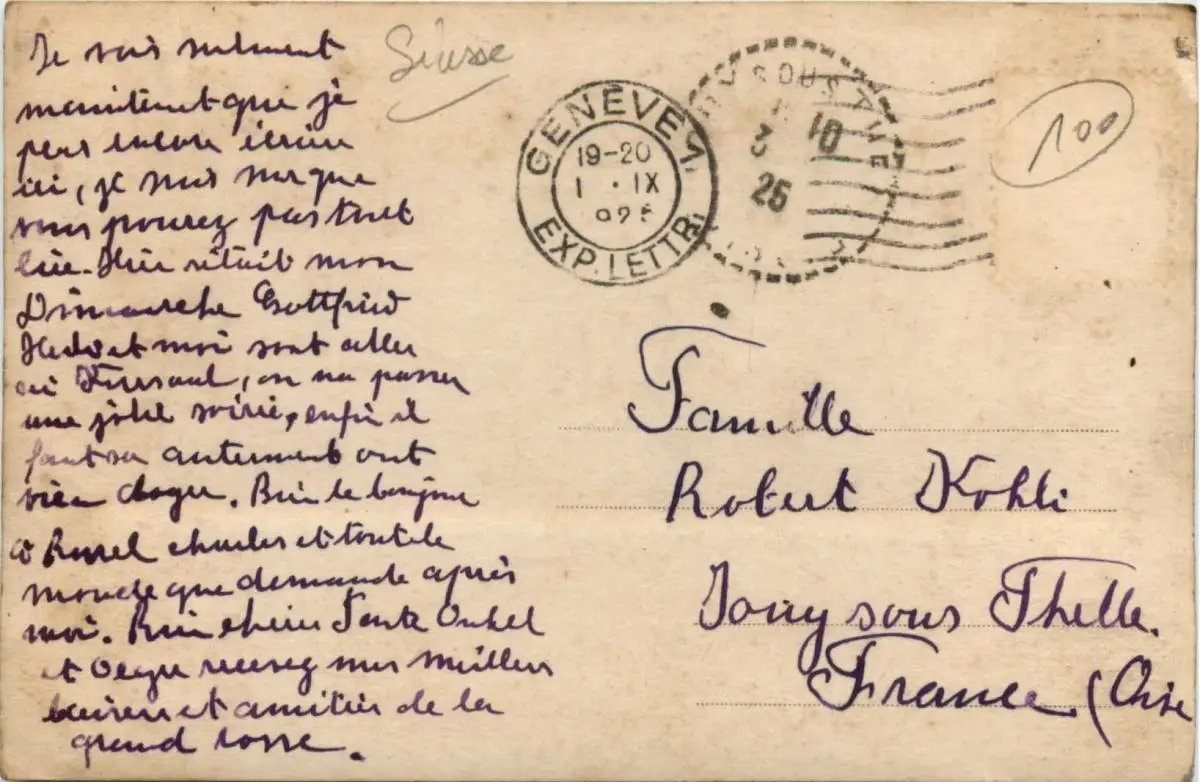 Je vois seulment
maintenent que je
peus encore écrire
ici, je suis sur que
vous pourez pas tout
lire. Hier s'était mon
Dimanche Gottfried
et moi sont aller
au Kursaal, on na passer
une jolie soirée, enfin il
faut sa autrement ont
vien . Bien le bonjour
à charles et tout le
monde que demande après
moi. Bien chers Tante Onkel
et recevez mes meilleurs
baisers et amitiés de la
grand rosse.
Suisse
GENÈVE 1
19-20
1 . IX
EXP. LETTR.
3 10
25
100
Famille
Robert Kohli
Jouy sous Thelle.
France (Oise